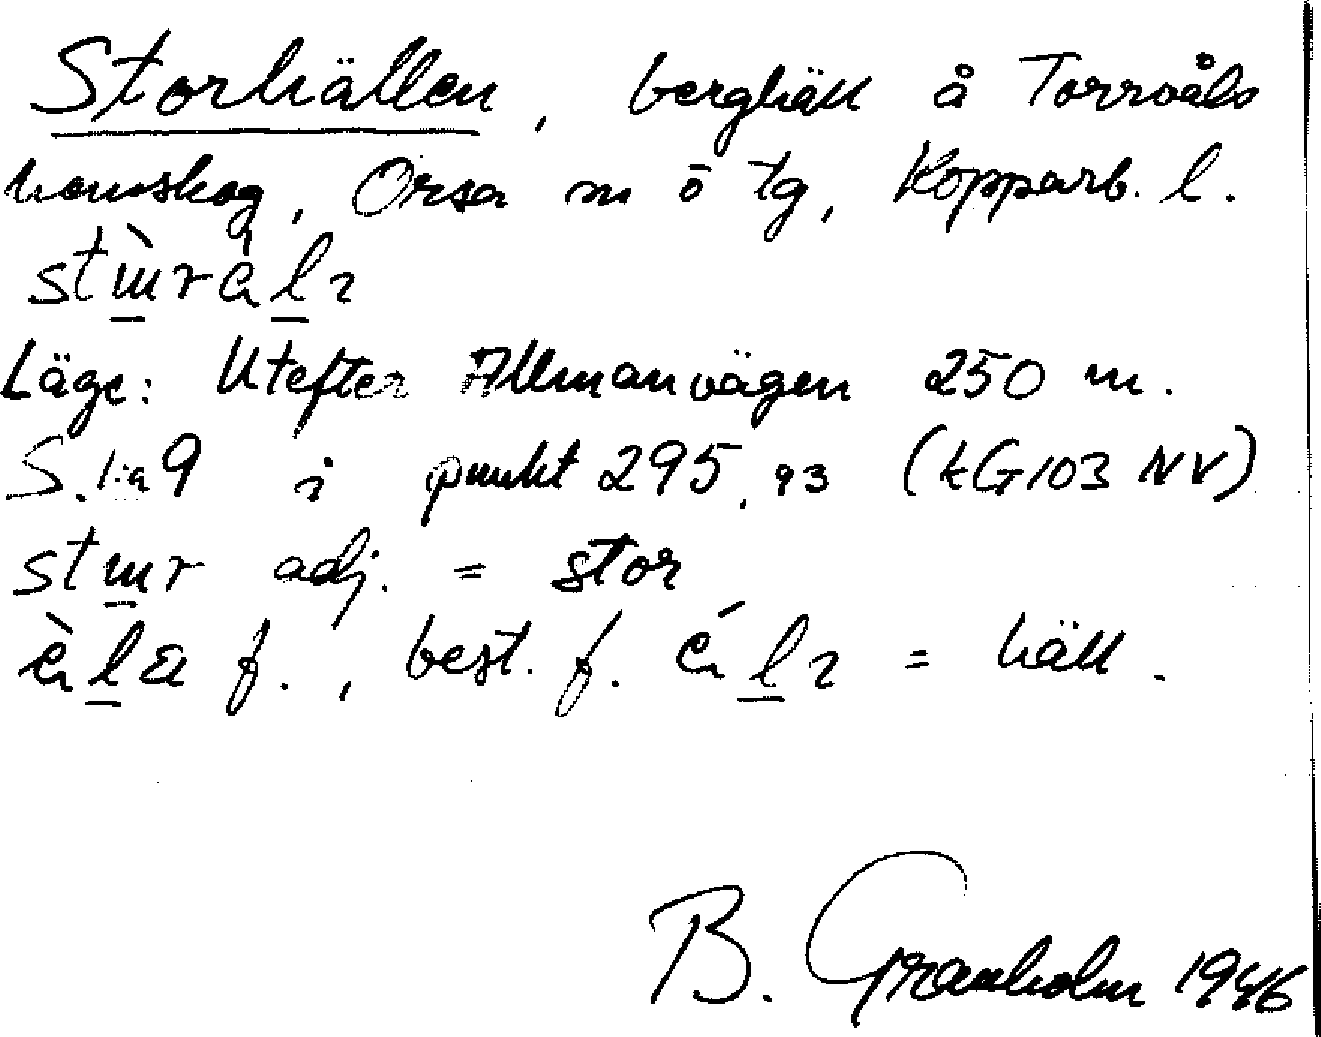 Storhällen, berghäll å Torrvåls
hemskog, Orsa m ö tg, Kopparb. l.
Läge: Utefter Allmanvägen 250 m.
S. 9 i punkt 295,93 (tG103 NV)
adj. = stor
f., best. f. = häll.
B. Granholm 1946